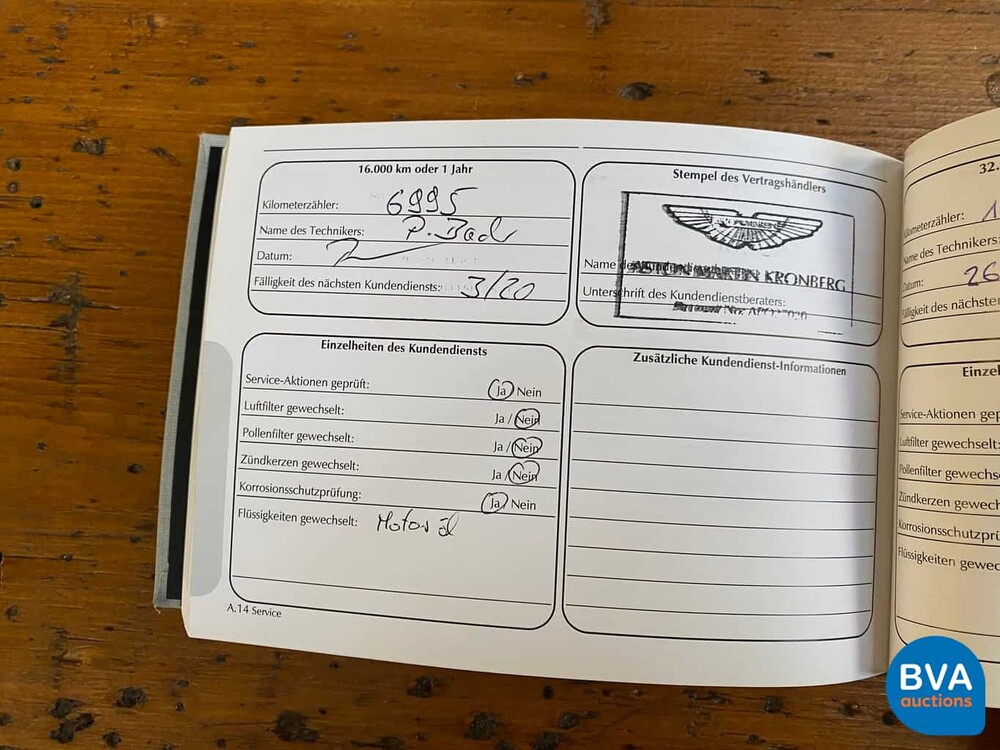 16.000 km oder 1 Jahr
Kilometerzähler: 6995
Name des Technikers: P.
Datum:
Fälligkeit des nächsten Kundendiensts: 3/20
Stempel des Vertragshändlers
ASTON MARTIN KRONBERG
Name
Unterschrift des Kundendienstberaters:
Einzelheiten des Kundendiensts
Service-Aktionen geprüft: Ja / Nein
Luftfilter gewechselt: Ja / Nein
Pollenfilter gewechselt: Ja / Nein
Zündkerzen gewechselt: Ja / Nein
Korrosionsschutzprüfung: Ja / Nein
Flüssigkeiten gewechselt: Motoröl
Zusätzliche Kundendienst-Informationen
A.14 Service
32.
Kilometerzähler: 1
Name des Technikers:
Datum: 26
Fälligkeit des nächsten
Einzel
Service-Aktionen gep
Luftfilter gewechs
Pollenfilter gewechs
Zündkerzen gewech
Korrosionsschutzprü
Flüssigkeiten gewec
BVA
auctions